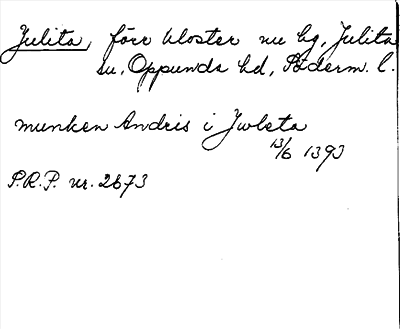 Julita, förr kloster nu hg, Julita
su, Oppunda hd, Söderm. l.
munken Andris i Jwleta
13/6 1393
P.R.P. nr. 2673